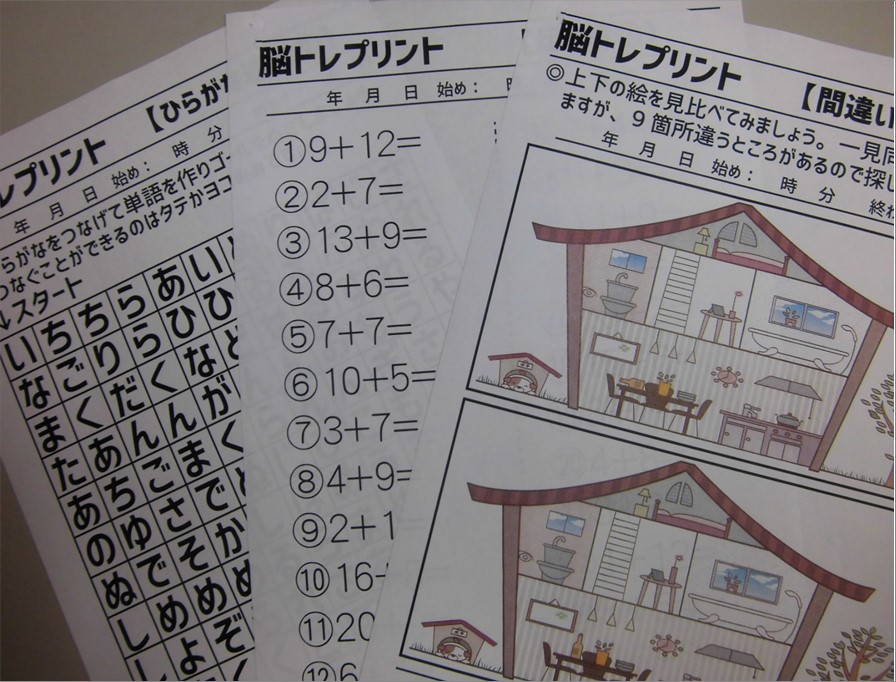 レプリント
【ひらがな
年 月 日 始め： 時 分
らがなをつなげて単語を作りゴー
つなぐことができるのはタテかヨコ
↓スタート
いちちらあいと
なごりらひひ
まくだくなど
たあんんが
あちごまく
のゆさで
ぬでそか
しめめめ
しょぞ
脳トレプリント
年 月 日 始め：
①9+12=
②2+7=
③13+9=
④8+6=
⑤7+7=
⑥10+5=
⑦3+7=
⑧4+9=
⑨2+1
⑩16-
⑪20
⑫6
脳トレプリント
【間違い
◎上下の絵を見比べてみましょう。一見同
ますが、9箇所違うところがあるので探し
年 月 日 始め： 時 分 終わ